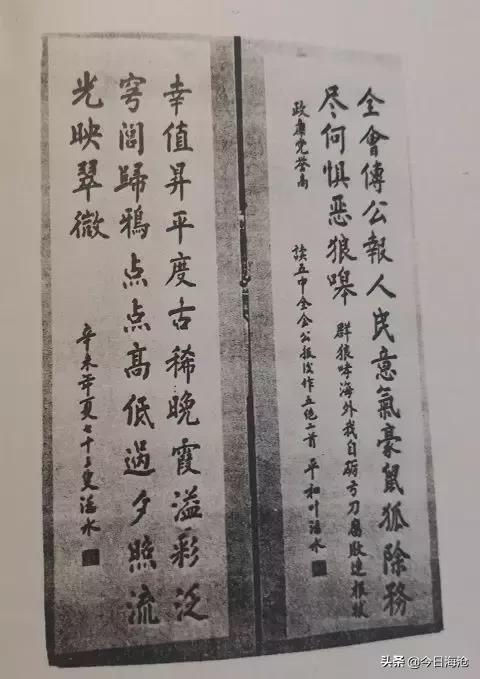 全會傳公報人民意氣豪鼠狐除務
尽何惧恶狼嗥
群狼哮海外我自砺弓刀腐败连根拔
政廉党誉高
读五中全会公报后作五绝二首 平和叶活水
幸值昇平度古稀晚霞溢彩泛
穹閭歸鴉点点高低過夕照流
光映翠微
辛未年夏七十三叟活水
头条 @今日海沧